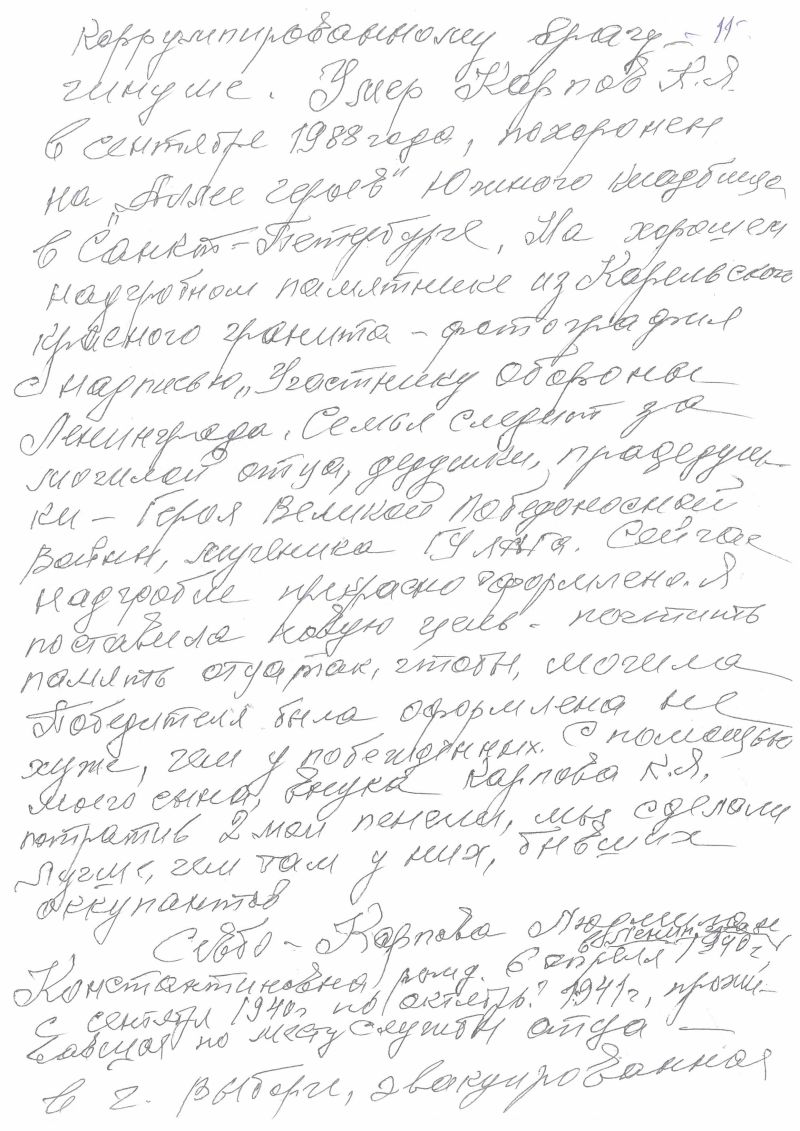 коррумпированному врагу – 11-
чинуше. Умер Карпов К.Я.
в сентябре 1988 года, похоронен
на „Аллее героев“ Южного кладбища
в Санкт-Петербурге, На хорошем
надгробном памятнике из Карельского
красного гранита – фотография
с надписью „Участнику обороны
Ленинграда. Семья следит за
могилой отца, дедушки, прадедуш-
ки – Героя Великой Победоносной
войны, мученика ГУЛАГа. Сейчас
надгробие прекрасно оформлено. Я
поставила новую цель – почтить
память отца так, чтобы, могила
Победителя была оформлена не
хуже, чем у побежденных. С помощью
моего сына, внука Карпова К.Я,
потратив 2 мои пенсии, мы сделали
лучше, чем там у них, бывших
оккупантов
Карпова Людмила
в Ленинграде
Константиновна, рожд. 6 апреля 1940г,
с сентября 1940г по октябрь 1941г, прожи-
вавшая по месту службы отца –
в г. Выборге, эвакуированная